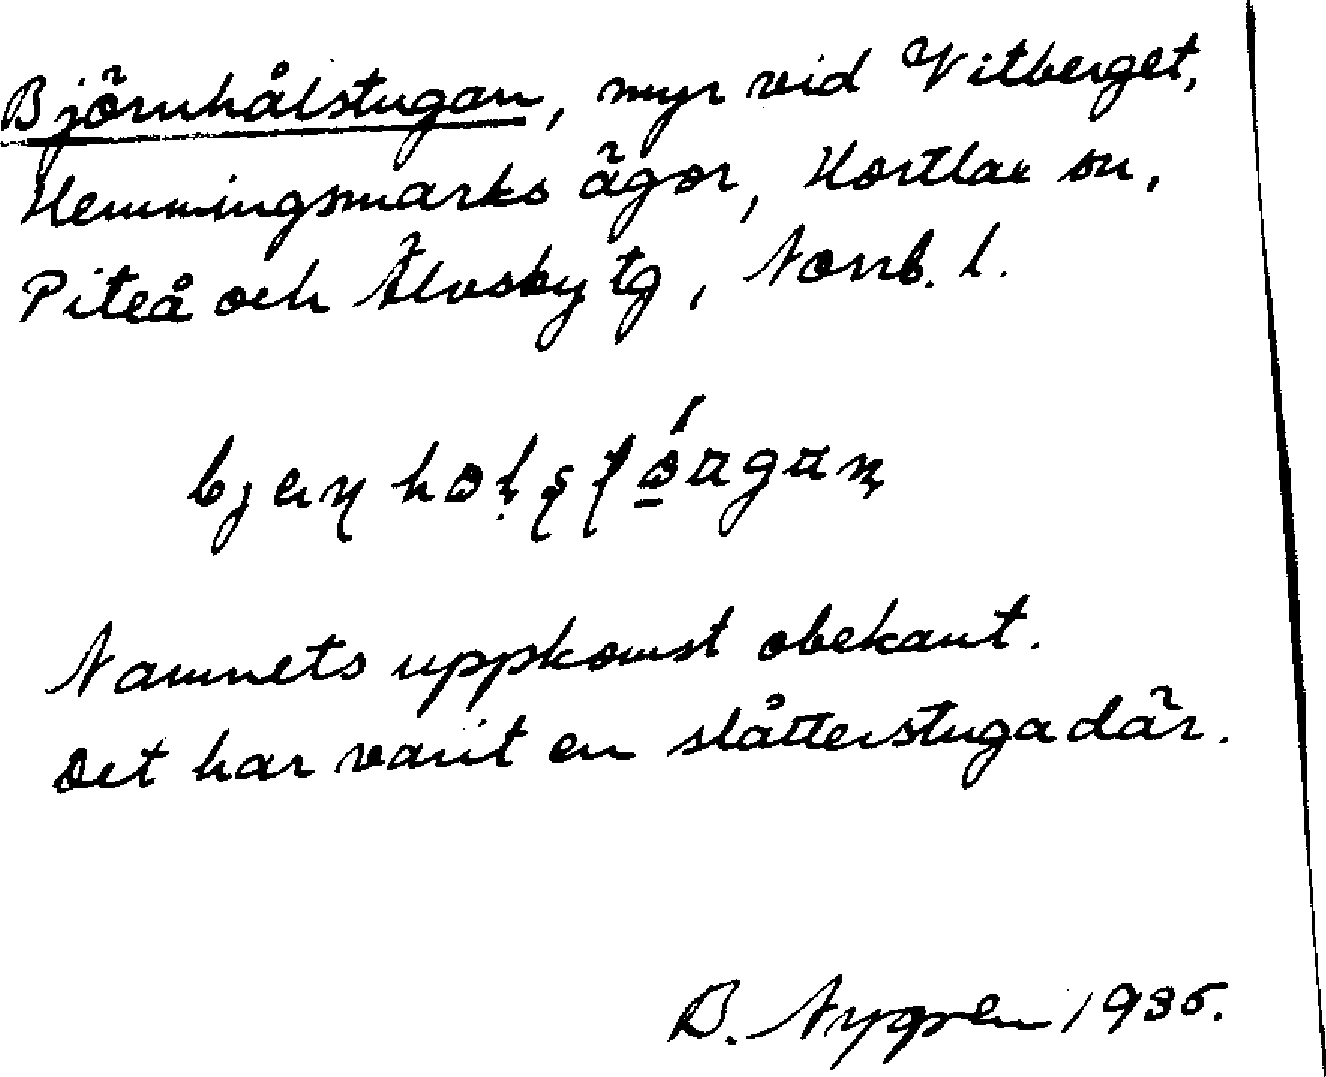 Björnhålstugan, myr vid Vitberget,
Hemmingsmarks ägor, Hortlax sn,
Piteå och Älvsby tg, Norrb. l.
Namnets uppkomst obekant.
Det har varit en slåtterstuga där.
B. Nygren 1935.